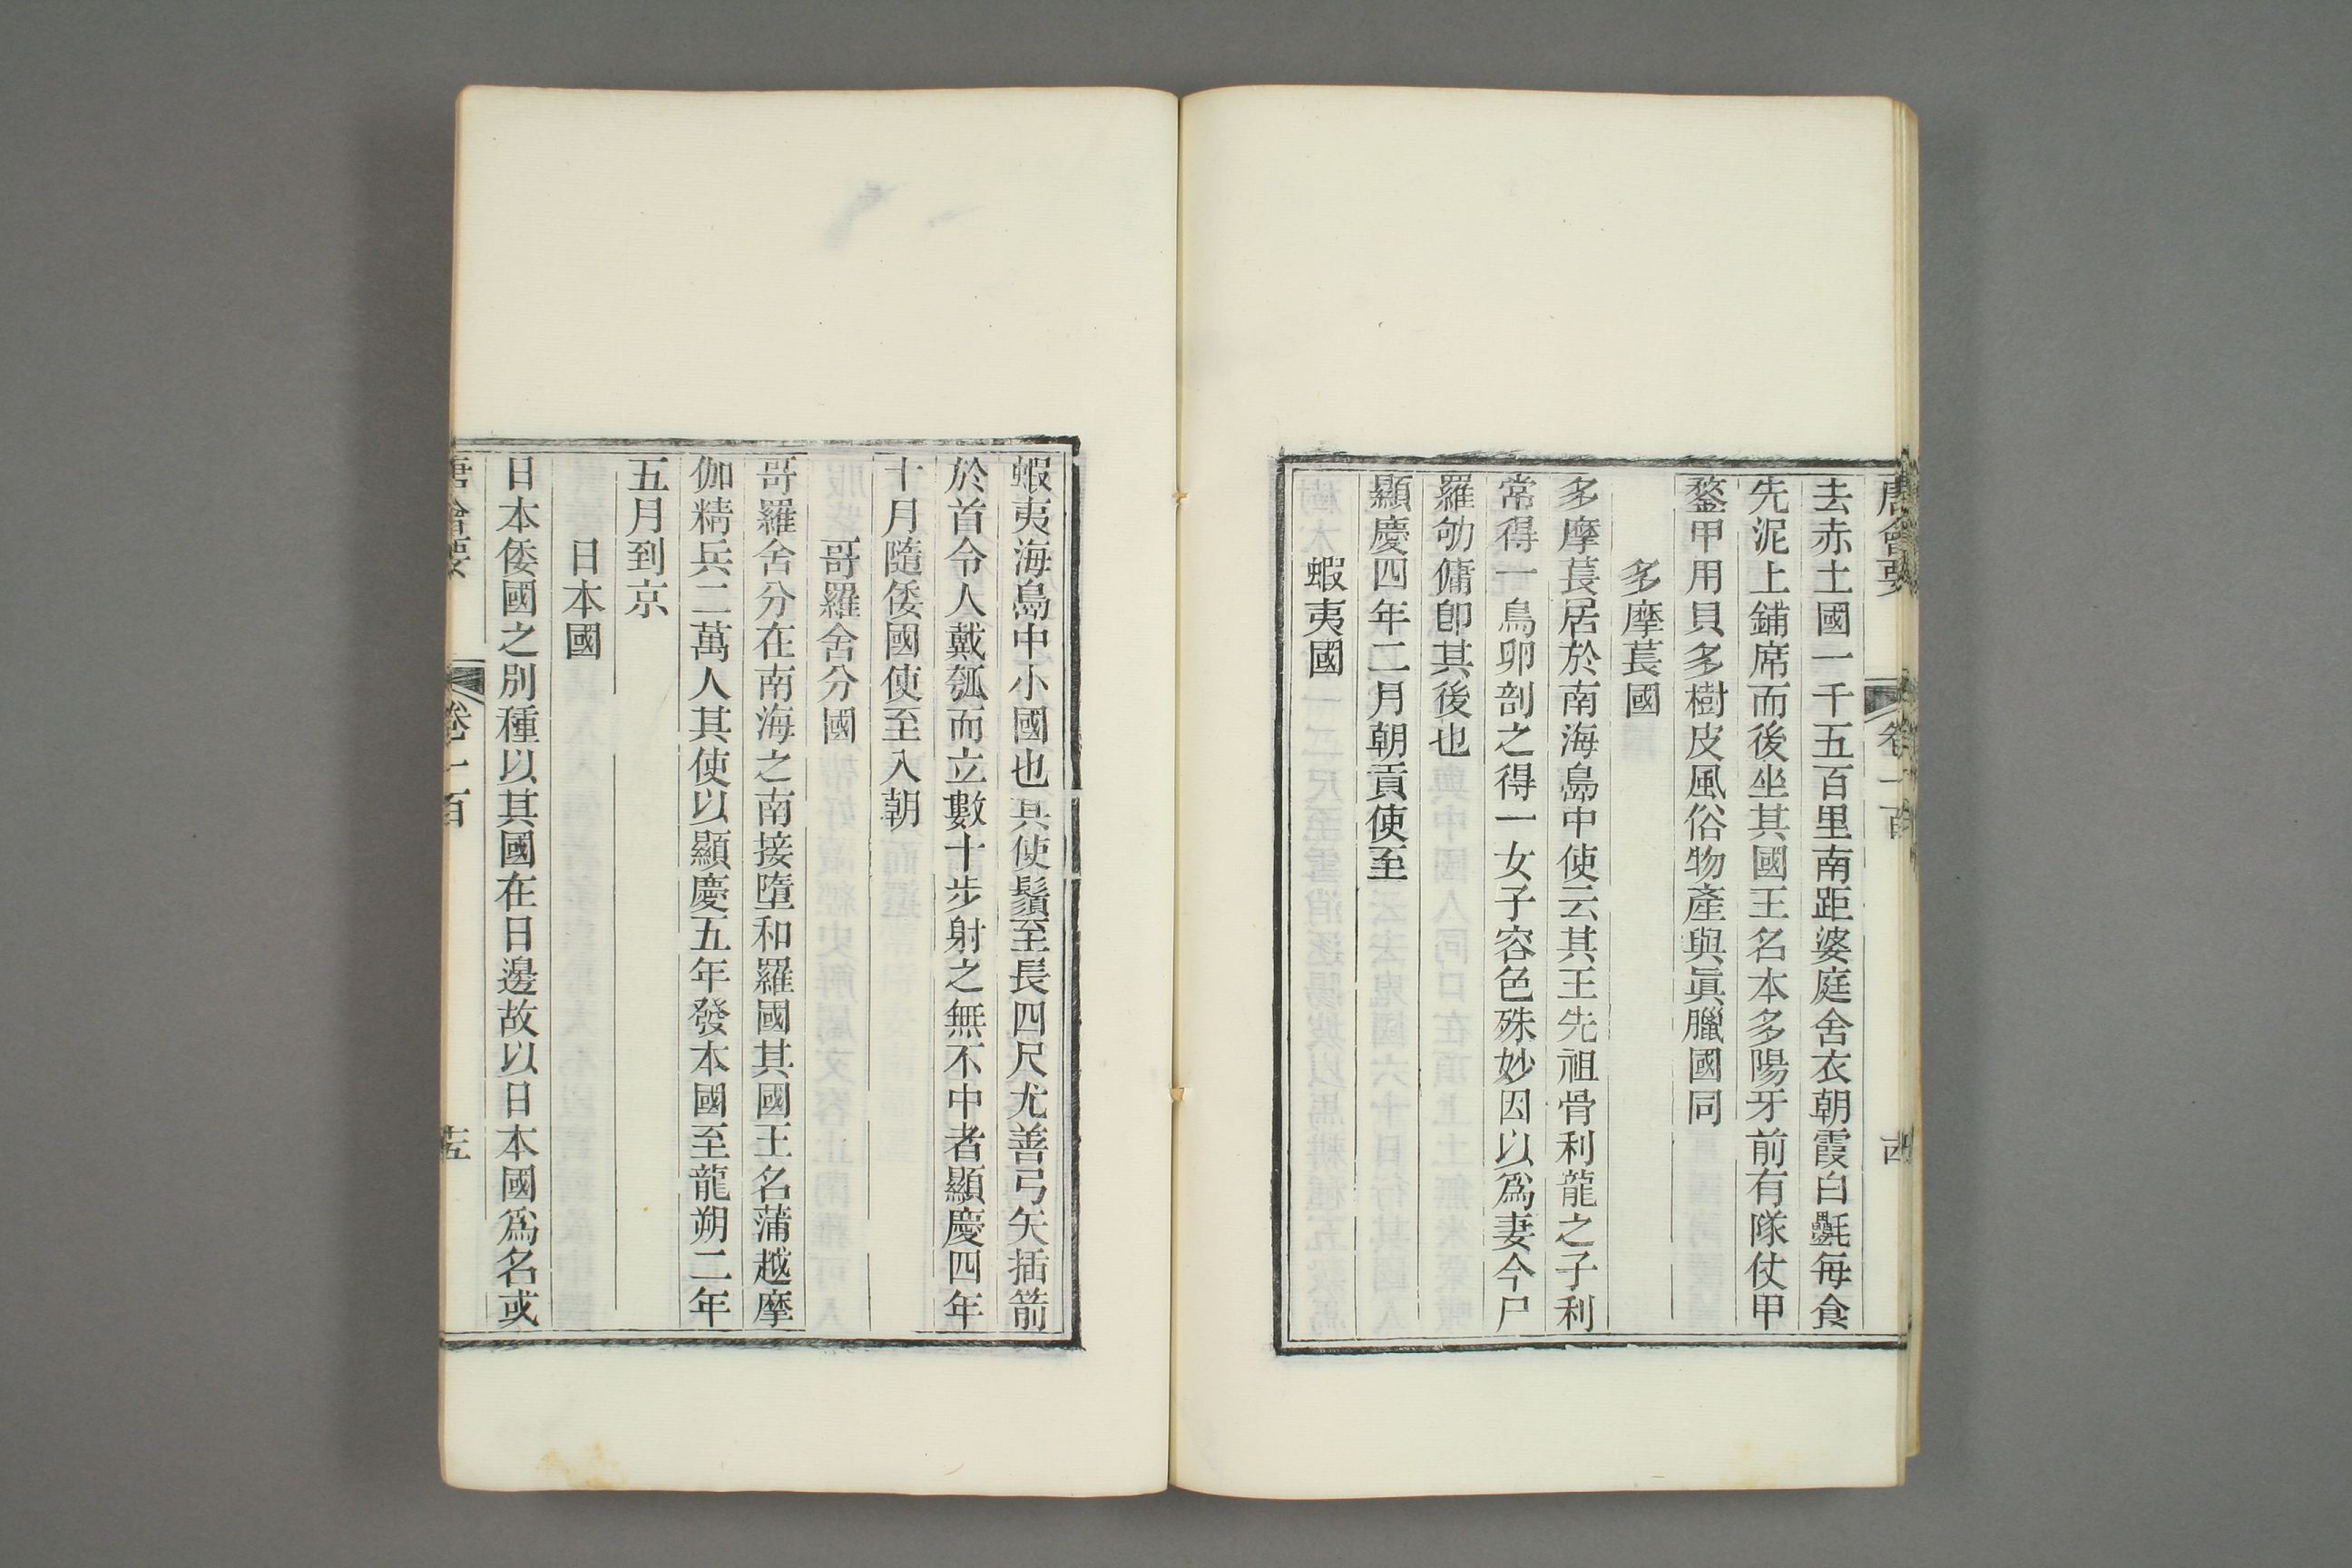 唐會要 卷一百
去赤土國一千五百里南距婆庭舍衣朝霞白㲲每食
先泥上鋪席而後坐其國王名本多陽牙前有隊仗甲
鍪甲用貝多樹皮風俗物產與眞臘國同
多摩萇國
多摩萇居於南海島中使云其王先祖骨利龍之子利
常得一鳥卵剖之得一女子容色殊妙因以爲妻今尸
羅劬傭卽其後也
顯慶四年二月朝貢使至
蝦夷國
蝦夷海島中小國也其使鬚至長四尺尤善弓矢插箭
於首令人戴瓠而立數十步射之無不中者顯慶四年
十月隨倭國使至入朝
哥羅舍分國
哥羅舍分在南海之南接墮和羅國其國王名蒲越摩
伽精兵二萬人其使以顯慶五年發本國至龍朔二年
五月到京
日本國
日本倭國之別種以其國在日邊故以日本國爲名或
唐會要 卷一百